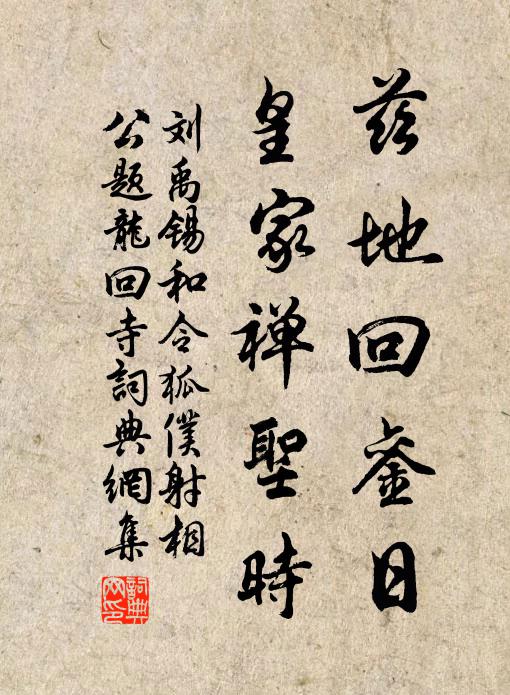 兹地回銮日
皇家禅聖時
刘禹锡和令狐僕射相
公题龍回寺詞典網集
詞典
网印